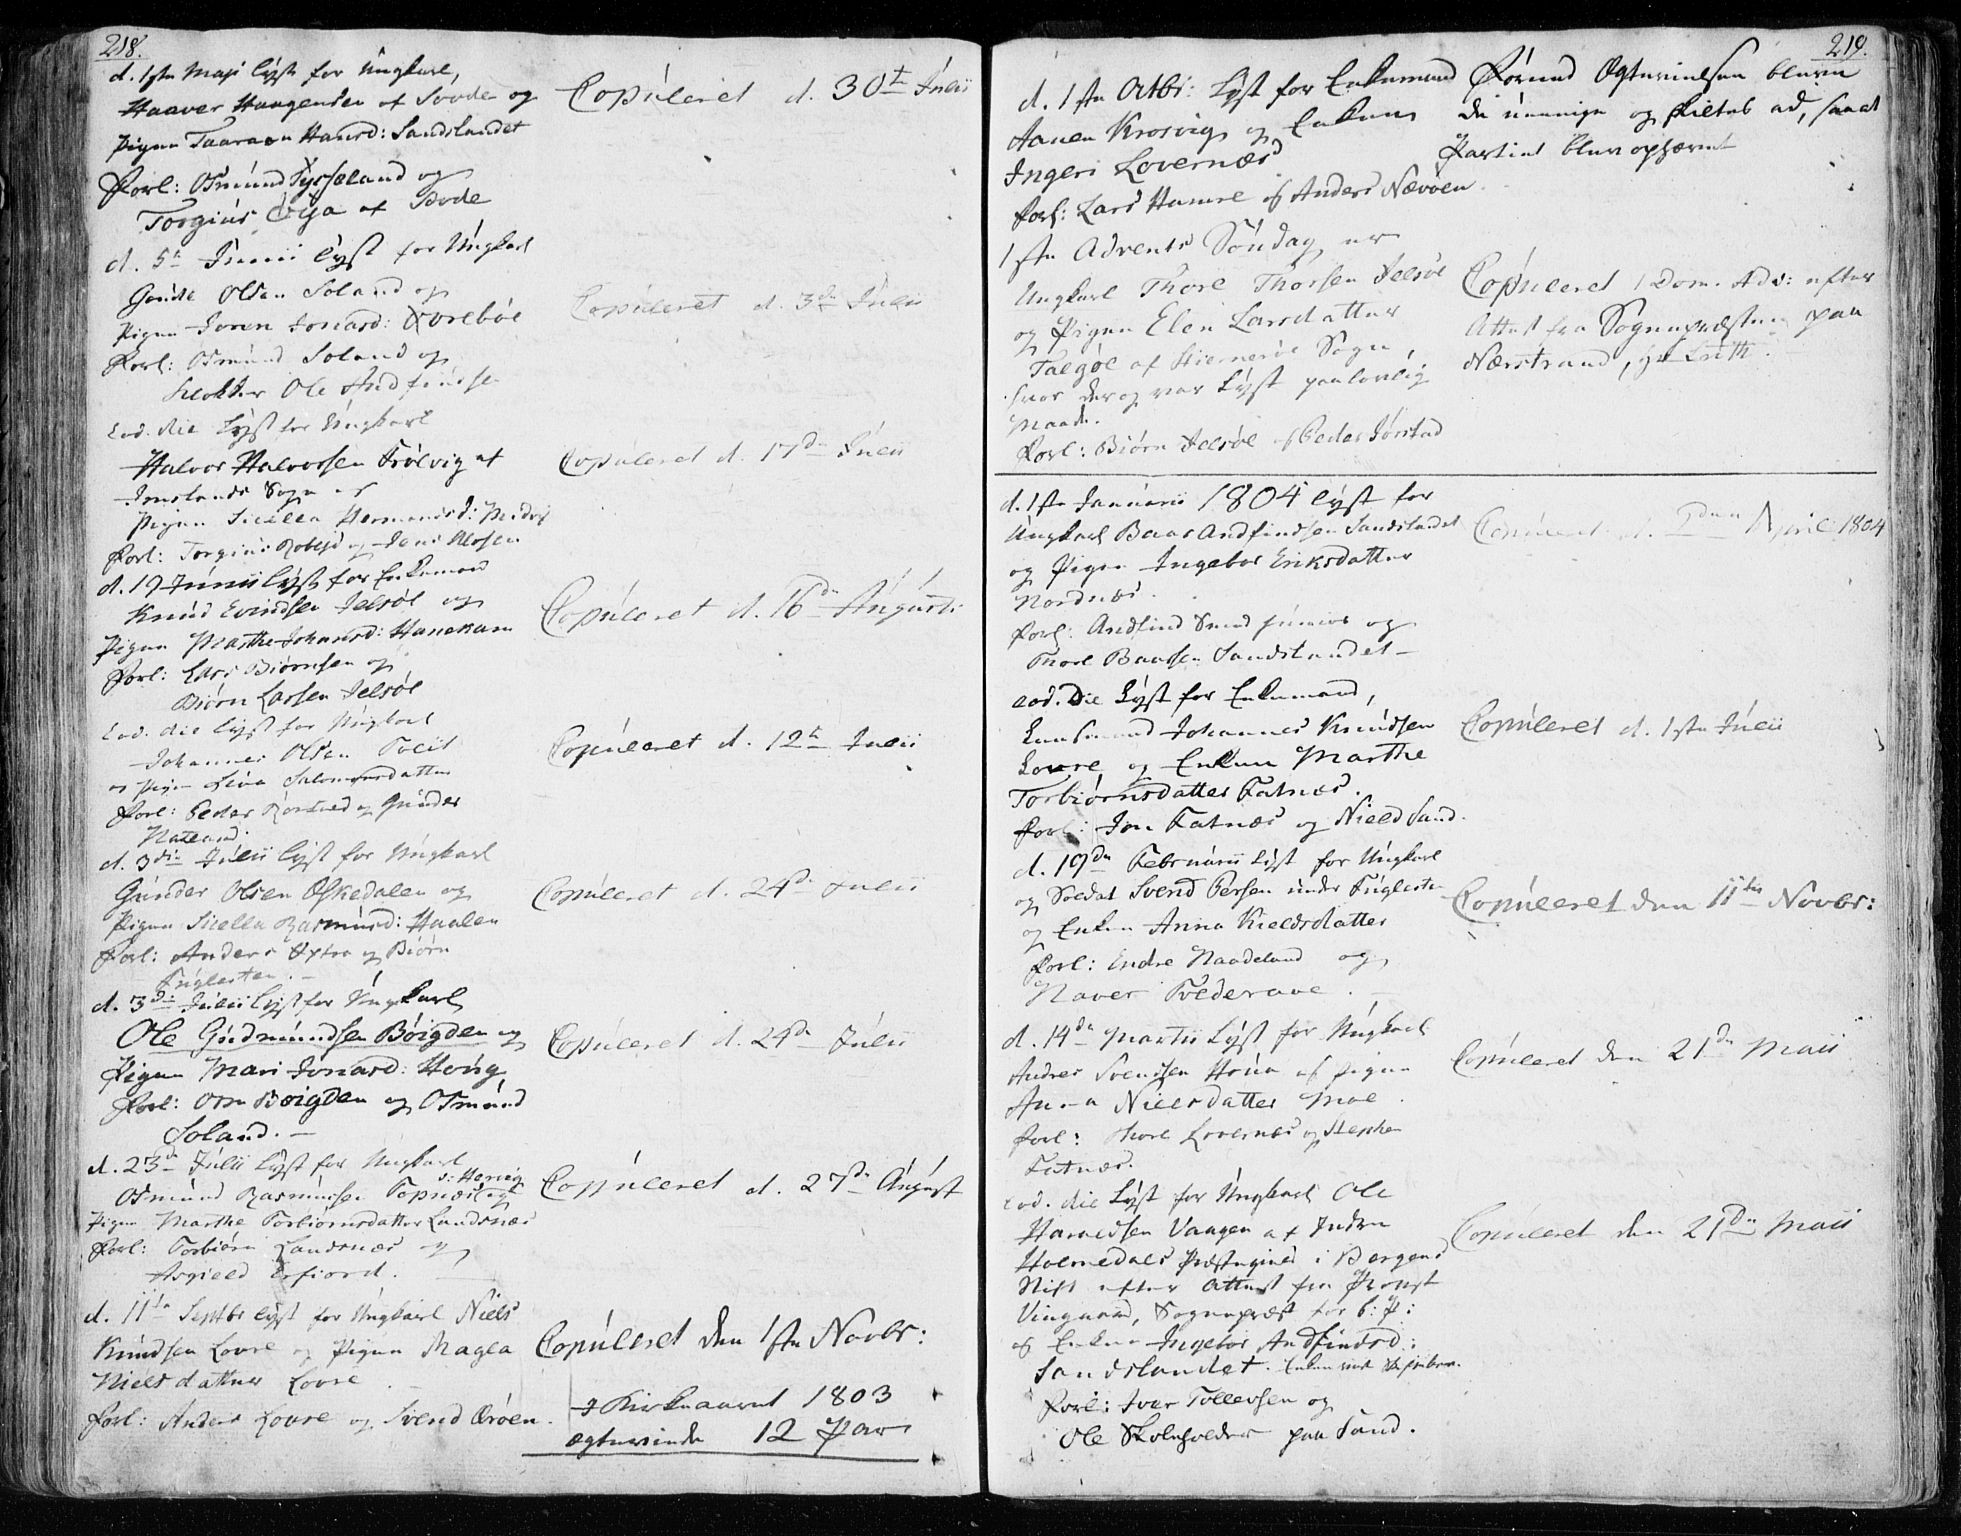 218.
d. 1ste Maji lyst for Ungkarl,
Haaver Haagensen af Sovde og
Pigen Taaraen Hansd: Sandslandet
Forl: Osmund Tysseland og
Torgius Øya af Sovde
Copuleret d. 30t Julii
d. 5t Junii lyst for Ungkarl
Gunde Olsen Soland og
Pigen Joren Jonasd:
Forl: Osmund Soland og
Klokker Ole Andfindse
Copuleret d. 3die Julii
Eod. die lyst for Ungkarl
Halvor Halvorsen Frølvig af
Jmslands Sogn og
Pigen Sicilla Hermundsd:
Forl: Torgius og Jens
Copuleret d. 17de Julii
d. 19 Junii lyst for Enkemand
Knud Evindsen Jelsøe og
Pigen Marthe Johansd: Hanekam
Forl: Lars Biørnsen og
Biørn Larsen Jelsøe
Copuleret d. 16de Augusti
Eod. die lyst for Ungkarl
Johannes Olsen
og Pigen Siva Salomonsdatter
Forl: Peder og Gunder
Copuleret d. 12te Julii
d. 3die Julii lyst for Ungkarl
Gunder Olsen Øskedalen og
Pigen Sicilla Rasmusd: Haalen
Forl: Anders og Biørn
Fuglesten.
Copuleret d. 24de Julii
d. 3die Julii lyst for Ungkarl
Ole Gudmundsen Bøigden og
Pigen Mari Jonasd: Houg
Forl: Orm Bøigden og Osmund
Soland. –
Copuleret d. 24de Julii
d. 23de Julii lyst for Ungkarl
Osmund Rasmusse Fopnæs og
Pigen Marthe Torbiørnsdatter Landsnæs
Forl: Torbiørn Landsnæs og
Asgield Erfiord.
Copuleret d. 27de August
d. 11te Septbr lyst for Ungkarl Niels
Knudsen Lovre og Pigen Magla
Nielsdatter Lovre
Forl: Anders Lovre og Svend Ørøen.
Copuleret den 1ste Novbr:
I Kirkeaaret 1803
ægteviede 12 Par
219.
d. 1ste Octbr: Lyst for Enkemand
Aanen Krosvig og Enken
Ingeri Lovernæs
Forl: Lars Hamre og Anders Nævøen
Førend Ægtevielsen bleve
de uenige og skiltes ad, saa at
Partiet blev ophævet
1ste Advents Søndag er
Ungkarl Thore Thorsen Jelsøe
og Pigen Elen Larsdatter
Talgøe af Hiernerøe Sogn,
hvor der og var Lyst paa lovlig
Maade.
Forl: Biørn Jelsøe og Peder Jørstad
Copuleret 1 Dom. Adv: efter
Attest fra Sognepræsten paa
Nærstrand, Hr
d. 1ste Januarii 1804 lyst for
Ungkarl Baar Andfindsen Sandslandet
og Pigen Ingebor Eriksdatter
Nordnæs.
Forl: Andfind Sund junior og
Thore Baarsen Sandslandet –
Copuleret d. April 1804
eod. Die Lyst for Enkemand,
Lensmand Johannes Knudsen
Lovre og Enken Marthe
Torbiørnsdatter Fatnæs.
Forl: Jon Fatnæs og Niels Sand.
Copuleret d. 1ste Julii
d. 19de Februarii Lyst for Ungkarl
og Soldat Svend Persen under Fuglesten
og Enken Anna Kieldsdatter
Forl: Endre Naadeland og
Haver Tvederaae. –
Copuleret den 11te Novbr:
d. 14de Martii Lyst for Ungkarl
Andres Svendsen og Pigen
Anna Nielsdatter Moe.
Forl: Thore Lovernæs og Stephen
Fatnæs.
Copuleret den 21de Maii
Eod. die Lyst for Ungkarl Ole
Haraldsen Vaagen af Indre
Holmedals Præstegield i Bergens
Stift efter Attest fra Provst
Vingaard, Sognepræst for b: P:
og Enken Ingebor Andfindsd:
Sandslandet.
Forl: Iver Tollevsen og
Ole Skoleholder paa Sand.
Copuleret den 21de Maii